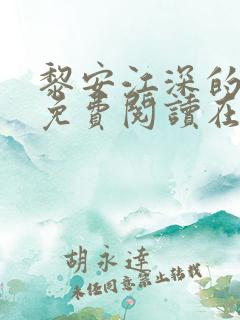 黎安江深的
免費閱讀在
胡永達
未經同意禁止轉載